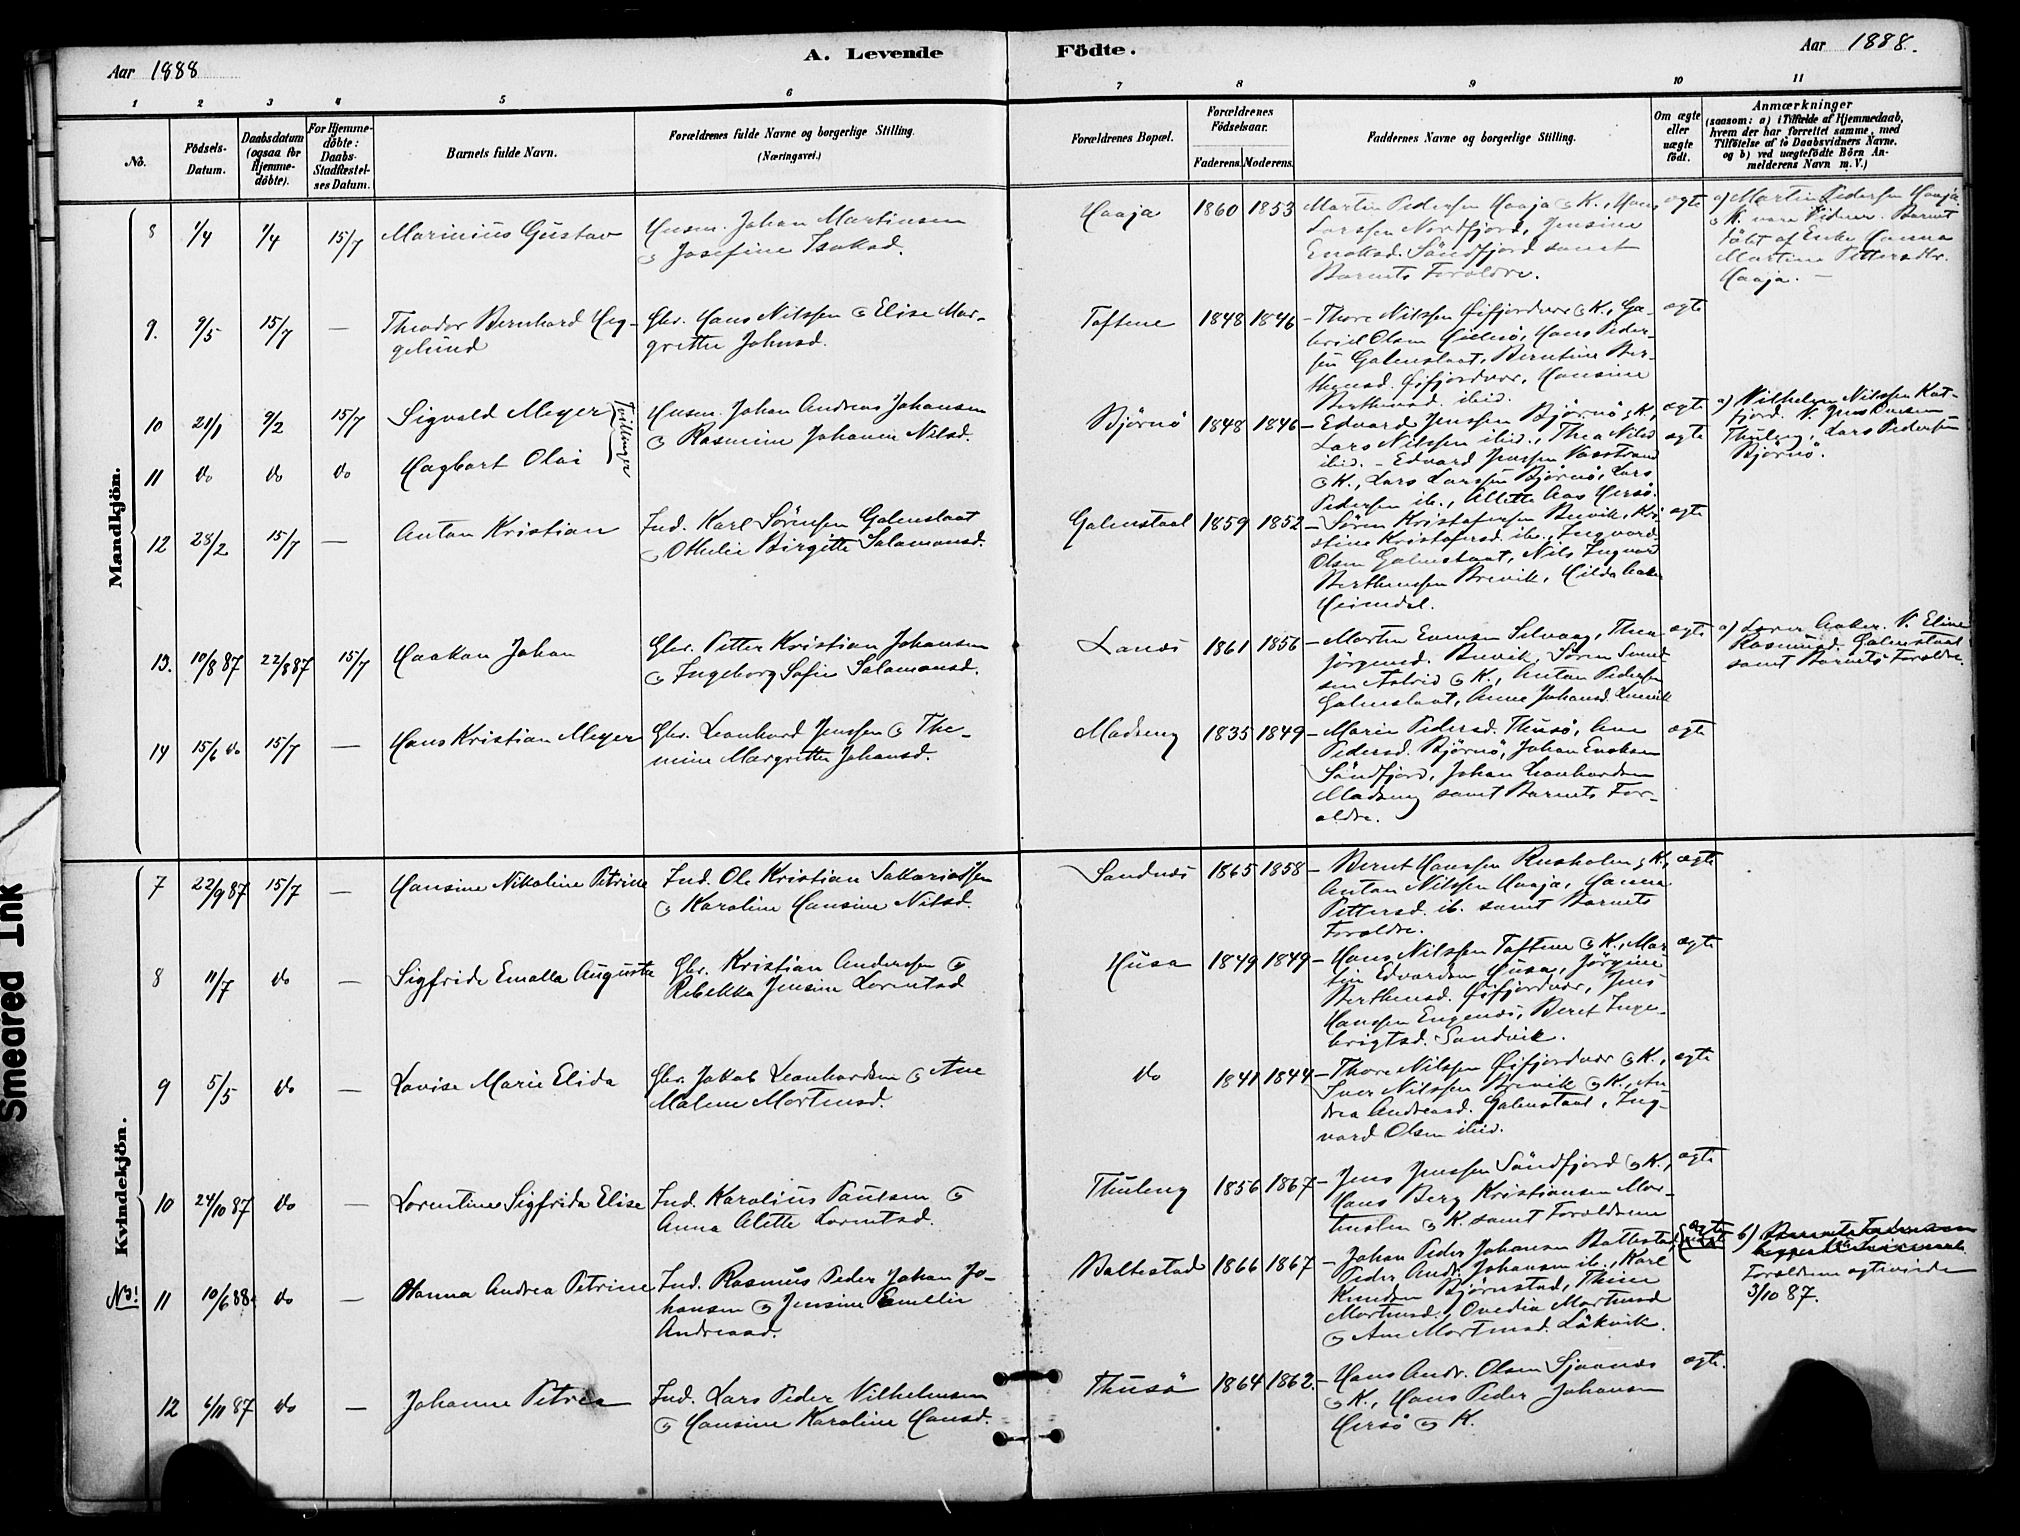 Aar 1888
A. Levende
Födte.
Aar 1888.
1 2 3 4 5 6 7 8 9 10 11
No.
Födsels-
Datum.
Daabsdatum
(ogsaa for
Hjemme-
døbte).
For Hjemme-
döbte:
Daabs-
Stadfæstel-
ses Datum.
Barnets fulde Navn.
Forældrenes fulde Navne og borgerlige Stilling.
(Næringsvei.)
Forældrenes Bopæl.
Forældrenes
Födselsaar.
Faderens. Moderens.
Faddernes Navne og borgerlige Stilling.
Om ægte
eller
uægte
født.
Anmærkninger
(saasom: a) i Tilfælde af Hjemmedaab,
hvem der har forrettet samme, med
Tilföielse af to Daabsvidners Navne.
og b) ved uægtefödte Börn An-
melderens Navn m. V.)
Mandkjön.
8 1/4 1/4 15/7 Marinius Gustav
Husm. Johan Martinsen
& Josefine Isaksd.
Haaja 1860 1853
Martin Pedersen Haaja & K., Hans
Larssen Nordfjord, Jensine
Enoksd. Sandfjord samt
Barnets Forældre.
ægte
a) Martin Pedersen Haaja
& K. vare Vidner. Barnet
døbt af Enke Hanna
Martine Pettersdtr.
Haaja. —
9. 9/5 15/7 — Theodor Bernhard Heg-
gelund
Gbr. Hans Nilssen & Elise Mar-
grethe Johnsd.
Toftene 1848 1846
– Thore Nilssen Øifjordvær & K., Ga-
briel Olsen, Hans Peder-
sen Galnstaat, Berntine Ber-
thensd. Øifjordvær, Hansine
Berthensd. ibid.
ægte
10 21/1 9/2 15/7 Sigvald Meyer
Tvillinger
Husm. Johan Andreas Johansen
& Rasmine Johanne Nilsd.
Bjørnø 1848 1846
– Edvard Jenssen Bjørnø & K.,
Lars Nilssen ibid., Thea Nilsd.
ibid. – Edvard Jenssen Vasstrand
& K., Lars Larssen Bjørnø, Lars
Pedersen ib., Alette Aas Hersø.
ægte
ægte
a) Vilhelm Nilssen Kat-
fjord. V. Jens Paulsen
Thuleng, Lars Pedersen
Bjørnø.
11 do do do Hagbart Olai
12 28/2 15/7 — Anton Kristian
Ind. Karl Sørensen Galnstaat
& Othelie Birgitte Salamonsd.
Galnstaat 1859 1852
– Søren Kristofersen Buvik, Kri-
stine Kristofersd. ib., Ingvard
Olsen Galnstaat, Nils Ingvard
Berthenssen Brevik, Hilda Aaker
Heimdal.
ægte
13. 10/8 87 22/8 87 15/7 Haakon Johan
Gbr. Petter Kristian Johansen
& Ingeborg Sofie Salamonsd.
Lanæs 1861 1856
– Morten Evensen Selvaag, Thea
Jørgensd. Buvik, Søren Simon-
sen Astrid & K., Anton Pedersen
Galnstaat, Anne Johansd.
ægte
a) Lærer Aaker. V. Eline
Rasmusd. Galnstaat
samt Barnets Forældre.
14 15/6 do 15/7 — Hans Kristian Meyer
Gbr. Leonhard Jenssen & The-
mine Margrethe Johansd.
Madseng 1835 1849
– Marie Pedersd. Thusø, Ane
Pedersd. Bjørnø, Johan Enoksen
Sandfjord, Johan Leonhardsen
Madseng samt Barnets For-
ældre.
ægte
Kvindekjön.
7 22/9 87 15/7 — Hansine Nikoline Petrine
Ind. Ole Kristian Sakariassen
& Karoline Hansine Nilsd.
Sandnæs 1865 1858
– Bernt Hanssen Rusholm & K,
Anton Nilssen Haaja, Hanna
Pettersd. ib. samt Barnets
Forældre.
ægte
8 11/7 do — Sigfride Emalla Augusta
Gbr. Kristian Andersen &
Rebekka Jensine Lorentsd
Husa 1849 1849
– Hans Nilssen Toftene & K., Mar-
tin Edvardsen Husa, Jørgine
Berthensd. Øifjordvær, Jens
Hanssen Engenæs, Beret Inge-
brigtsd. Sandvik.
ægte
9 5/5 do — Lovise Marie Elida
Gbr. Jakob Leonhardsen & Ane
Malene Mortensd.
do 1841 1844
– Thore Nilssen Øifjordvær & K.,
Iver Nilssen Brevik & K., An-
drea Andreasd. Galnstaat, Ing-
vard Olsen ibid.
ægte
10 24/10 87 do — Lorentine Sigfrida Elise
Ind. Karolius Paulsen &
Anna Alette Lorentsd.
Thuleng 1856 1867
– Jens Jenssen Sandfjord & K.,
Hans Berg Kristiansen Mor-
tensten & K samt Forældrene
ægte
NB! 11 10/6 88 do — Hanna Andrea Petrine
Ind. Rasmus Peder Johan Jo-
hansen & Jensine Emelie
Andreasd.
Baltestad 1866 1867
– Johan Peder Johansen Baltestad,
Peder Andr. Johansen ib., Karl
Knudsen Bjørnstad, Thine
Mortensd., Ovedia Mortensd
& Ane Mortensd. Løkvik.
ægte
b)
Forældrene ægteviede
3/10 87.
12 6/11 87 do — Johanne Petrea
Ind. Lars Peder Vilhelmsen
& Hansine Karoline Hansd.
Thusø 1864 1862.
– Hans Andr. Olsen Sjaanæs
& K., Hans Peder Johansen
Hersø & K.
ægte.
Smeared Ink